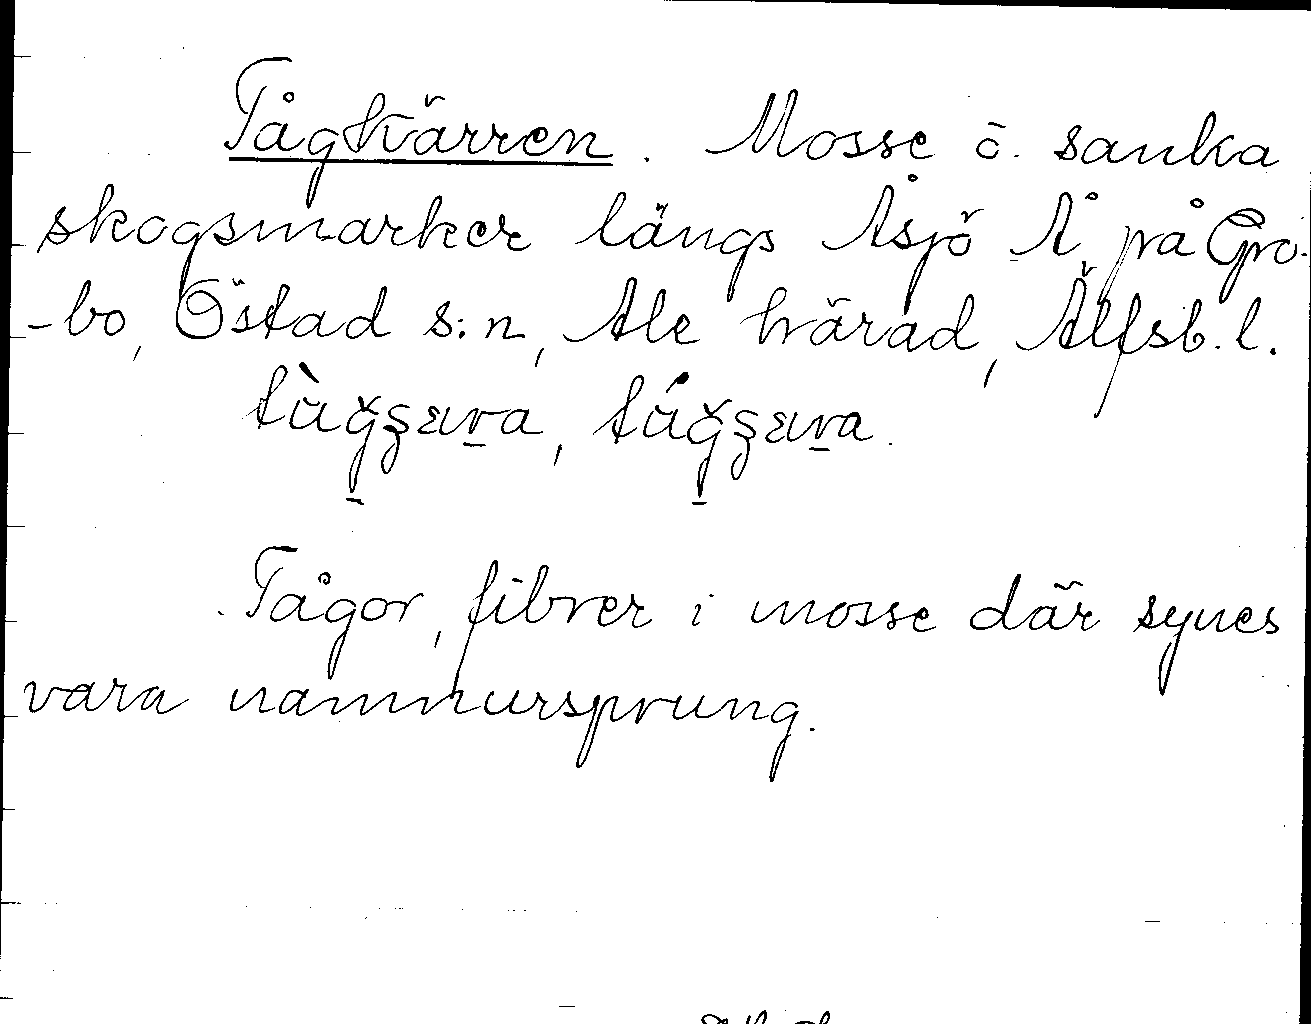 Tågkärren. Mosse o. sanka
skogsmarker längs Åsjö Å på Gro-
-bo, Östad s:n, Ale härad, Älfsb. l.
Tågor, fibrer i mosse där synes
vara namnursprung.